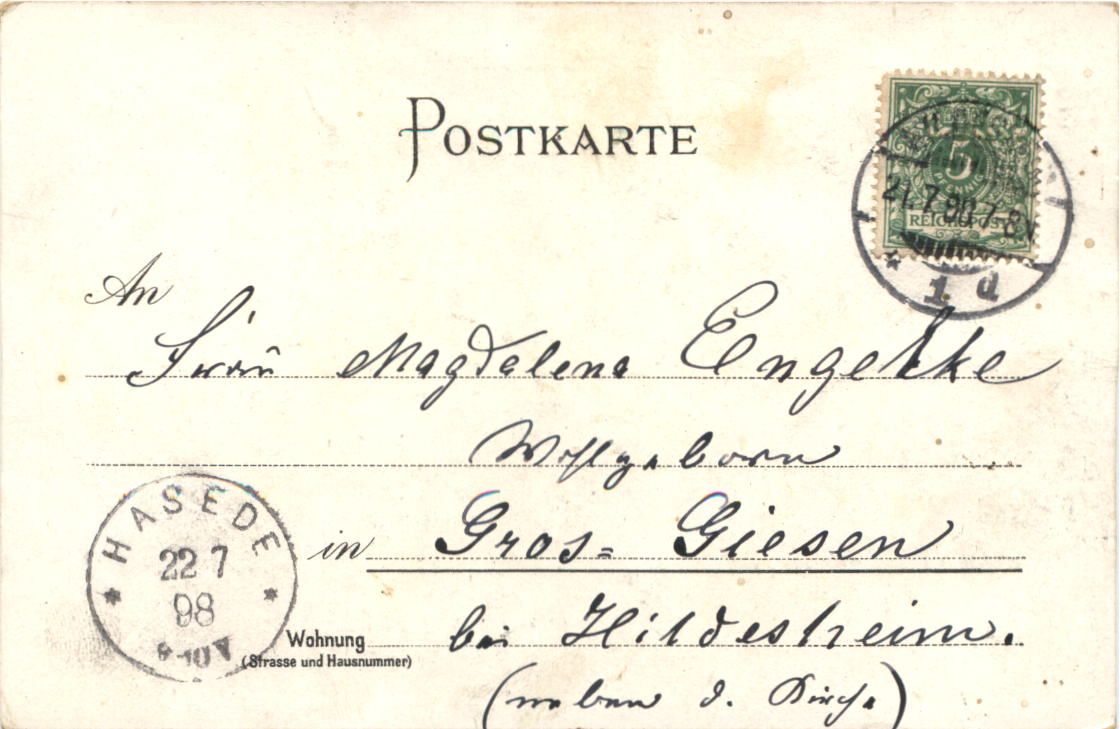 POSTKARTE
5
PFENNIG
REICHSPOST
21.7.98.7-8V
1 d
An
Frau Magdalena Engelke
Wohlgeborn
in Gros= Giesen
HASEDE
22 7
98
9-10V
Wohnung
(Strasse und Hausnummer)
bei Hildesheim.
(neben d. Kirche)